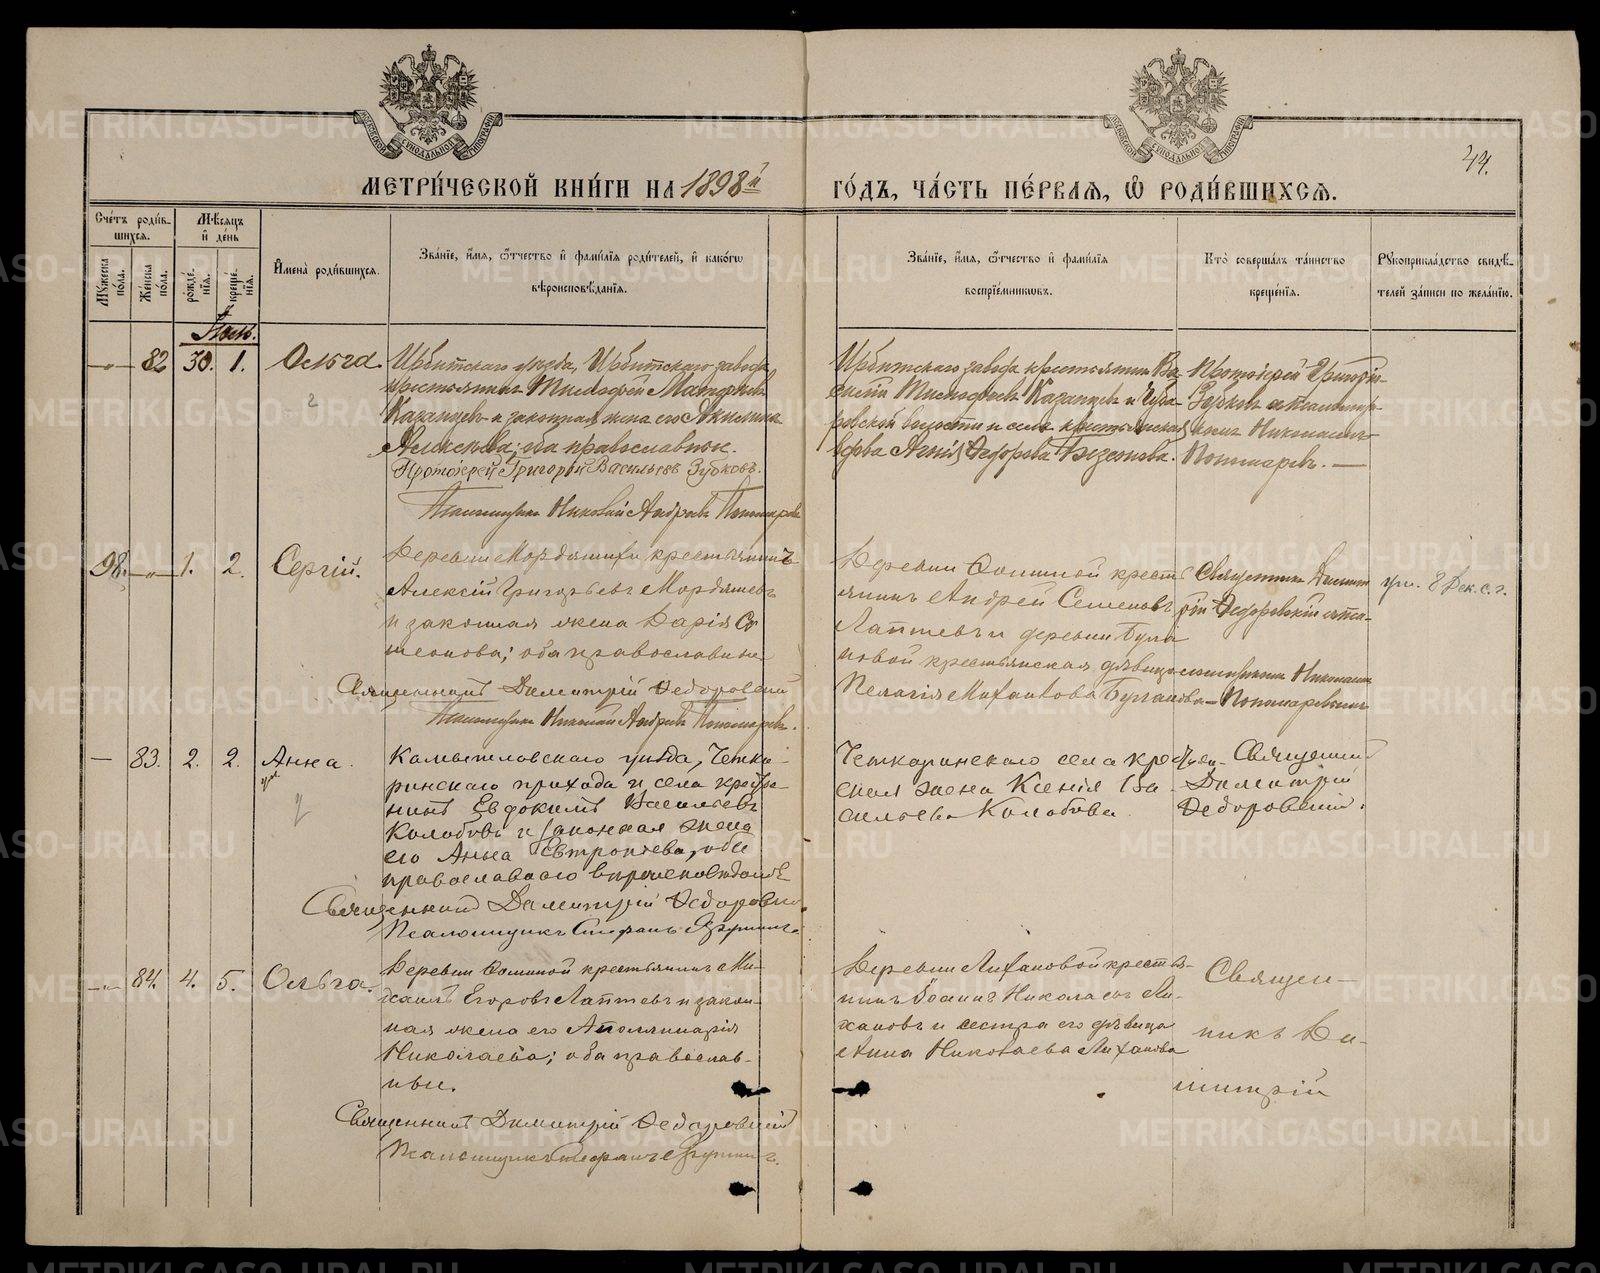 МЕТРИ́ЧЕСКОЙ КНИ́ГИ НА 1898й ГО́ДЪ, ЧА́СТЬ ПЕ́РВАЯ, Ѡ РОДИ́ВШИХСЯ.
44.
Сче́тъ роди́вшихся.
Мꙋ́жеска по́ла.
Же́нска по́ла.
Мѣ́сяцъ и де́нь
рожде́нїя.
креще́нїя.
И҆мена̀ роди́вшихся.
Зва́нїе, и҆́мя, ѻ҆́тчество и҆ фами́лїя роди́телей, и҆ како́гѡ
вѣроисповѣ́данїя.
Зва́нїе, и҆́мя, ѻ҆́тчество и҆ фами́лїя
воспрїе́мниковъ.
Кто̀ соверша́лъ та́инство
креще́нїя.
Рꙋкоприкла́дство свидѣ́-
телей за́писи по жела́нїю.
82 30. 1. Ольга
Ирбитскаго уѣзда, Ирбитскаго завода
крестьянинъ Тимофей Матѳіевъ
Казанцевъ и законная жена его Акилина
Алексѣева; оба православные.
Протоіерей Григорій Васильевъ Зубковъ.
Псаломщикъ Николай Андреевъ Пономаревъ
Ирбитскаго завода крестьянинъ Ва-
силій Тимофеевъ Казанцевъ и
ровской волости и села крестьянская
вдова Ѳедорова
Протоіерей Григорій
Зубковъ съ псаломщи-
комъ Николаемъ
Пономаревъ. —
98. 1. 2. Сергій.
Деревни Мордяшихи крестьянинъ
Алексій Григорьевъ Мордяшевъ
и законная жена Дарія Си-
меонова; оба православные
Священникъ Димитрій Ѳедоровскій
Псаломщикъ Николай Андреевъ Пономаревъ.
Деревни Ѳоминой кресть-
янинъ Андрей Семеновъ
Лаптевъ и деревни Була-
новой крестьянская дѣвица
Пелагія Михайлова Буланова
Священникъ Димит-
рій Ѳедоровскій съ пса-
ломщикомъ Николаемъ
Пономаревымъ
ум. 8 Дек. с. г.
83. 2. 2. Анна.
ум
Камышловскаго уѣзда, Четка-
ринскаго прихода и села крестья-
нинъ Евдокимъ Васильевъ
Колобовъ и законная жена
его Анна Евтропіева, оба
православнаго вѣроисповѣданія
Священникъ Димитрій Ѳедоровскій
Псаломщикъ Стефанъ
Четкаринскаго села крестьян-
ская жена Ксенія Ва-
сильева Колобова
Священникъ
Димитрій
Ѳедоровскій.
84. 4. 5. Ольга.
Деревни Ѳоминой крестьянинъ Ми-
хаилъ Егоровъ Лаптевъ и закон-
ная жена его Аполлинарія
Николаева; оба православ-
ные.
Священникъ Димитрій Ѳедоровскій
Псаломщикъ Стефанъ
Деревни Лихановой крестья-
нинъ Іоаннъ Николаевъ Ли-
хановъ и сестра его дѣвица
Анна Николаева Лиханова
Священ-
никъ Ди-
митрій
METRIKI.GASO-URAL.RU